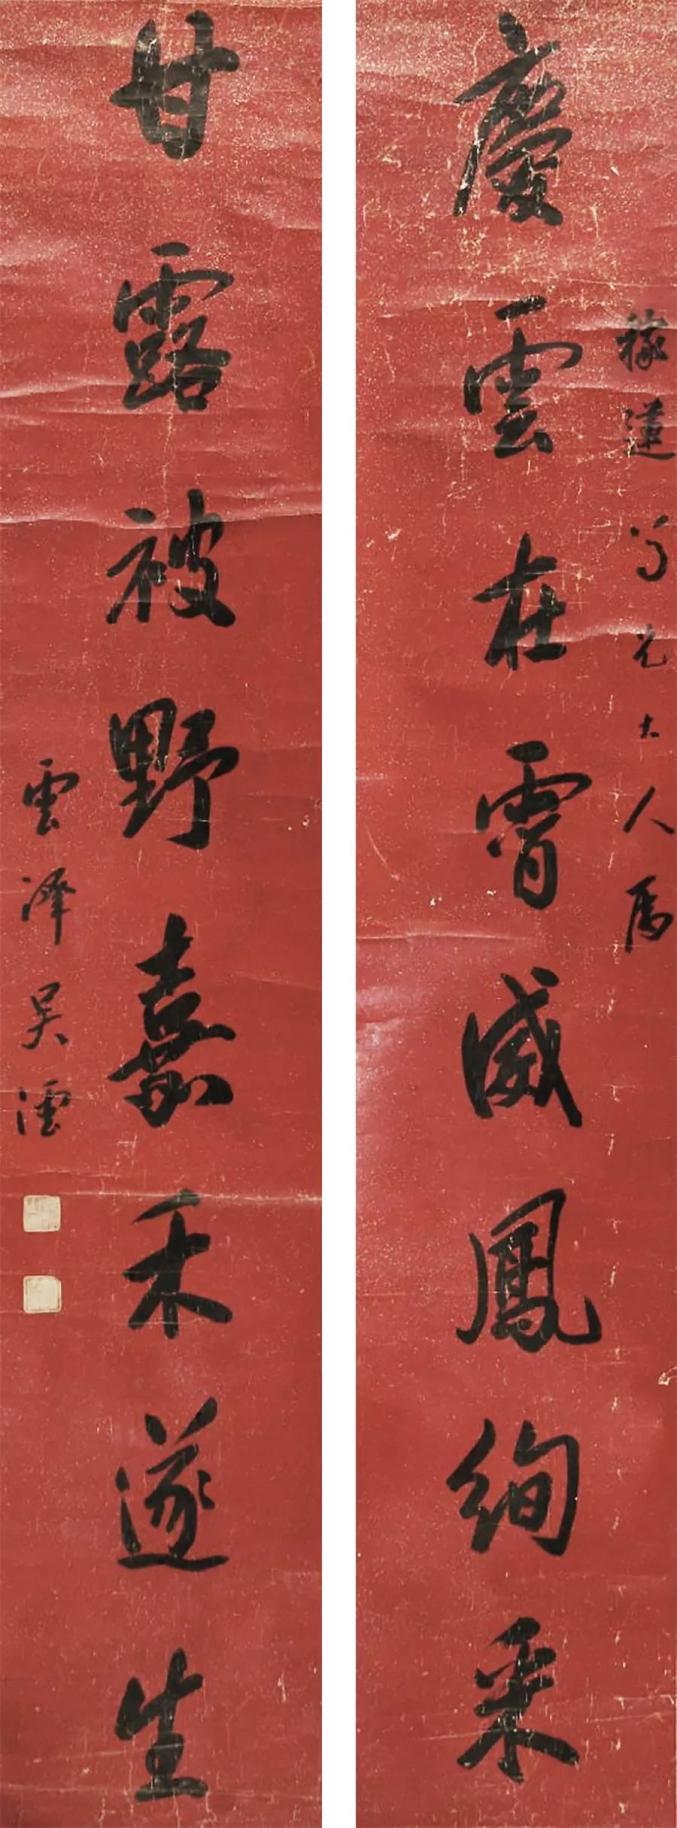 稼蓮兄大人屬
慶雲在霄威鳳絢采
甘露被野嘉禾遂生
雲澤吴澐